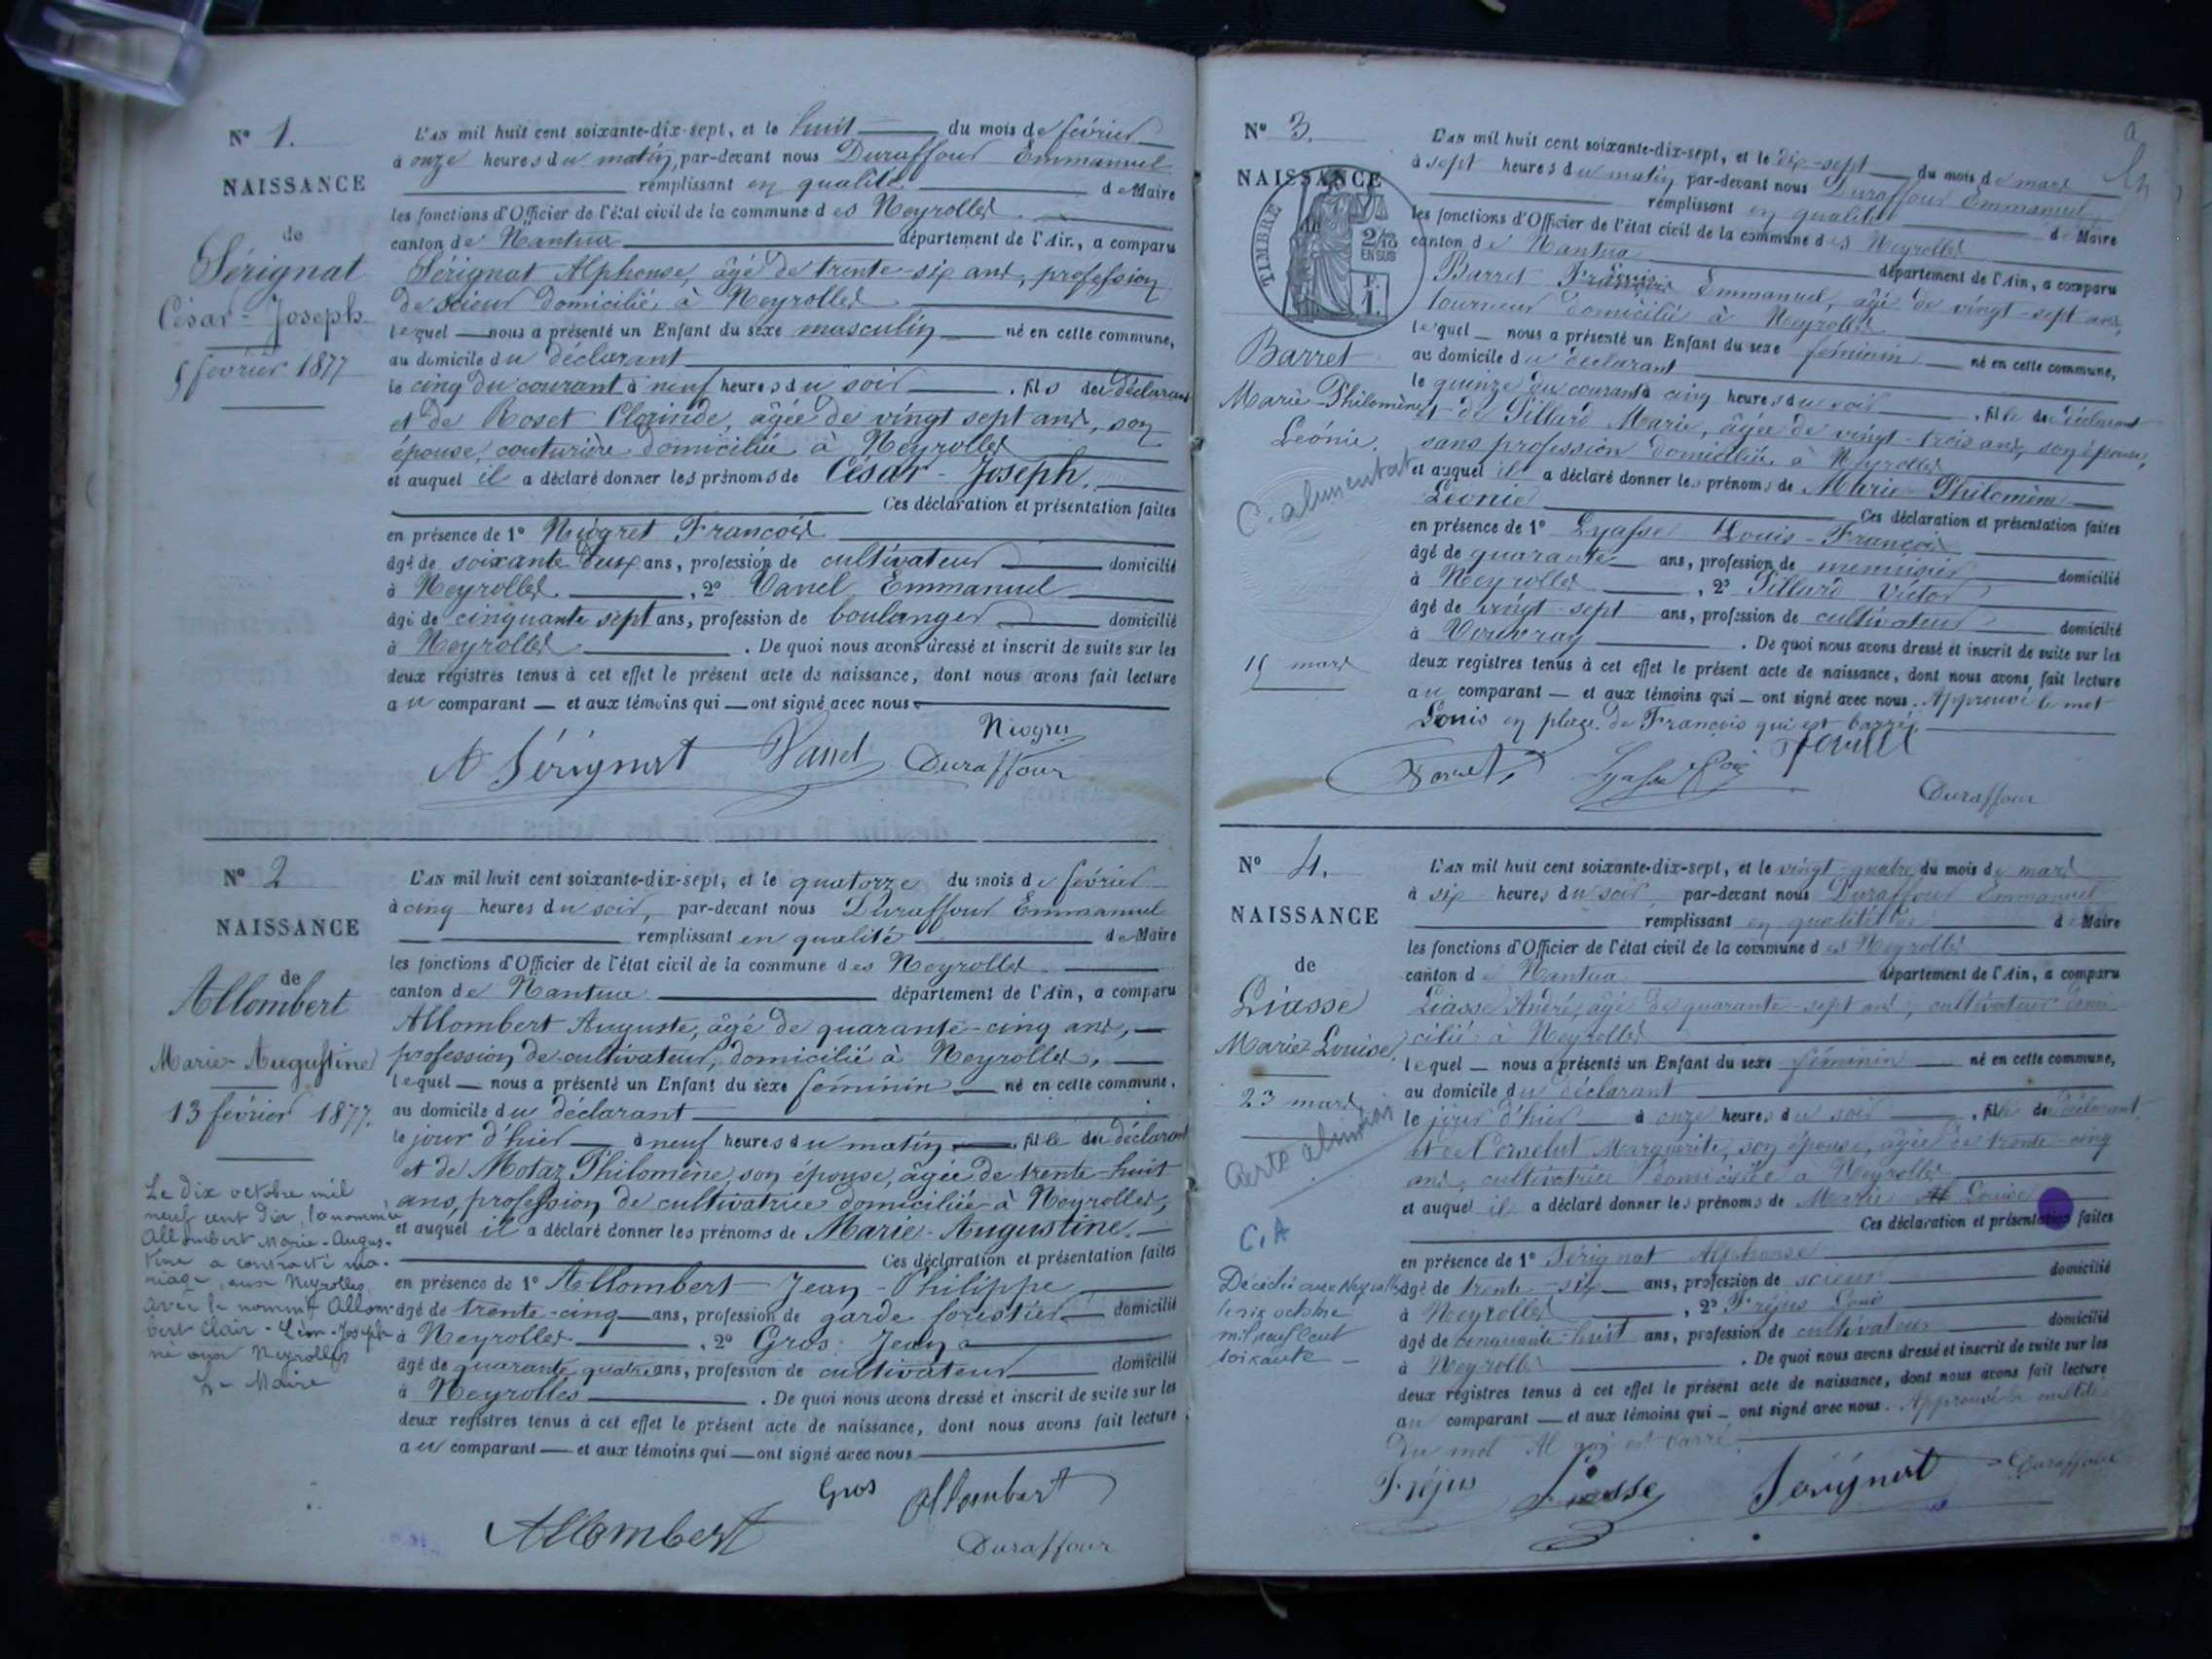 N° 1.
NAISSANCE
de
Sérignat
César-Joseph
5 février 1877
L'AN mil huit cent soixante-dix-sept, et le huit du mois de février
à onze heures du matin, par-devant nous Duraffour Emmanuel
remplissant en qualité de Maire
les fonctions d'Officier de l'état civil de la commune des Neyrolles
canton de Nantua département de l'Ain, a comparu
Sérignat Alphonse, âgé de trente-six ans, profession
de scieur domicilié à Neyrolles
lequel nous a présenté un Enfant du sexe masculin né en cette commune,
au domicile du déclarant
le cinq du courant à neuf heures du soir, fils du déclarant
et de Roset Clorinde, âgée de vingt sept ans, son
épouse, couturière domiciliée à Neyrolles
et auquel il a déclaré donner les prénoms de César-Joseph.
Ces déclaration et présentation faites
en présence de 1° Niogret François
âgé de soixante deux ans, profession de cultivateur domicilié
à Neyrolles, 2° Vanel Emmanuel
âgé de cinquante sept ans, profession de boulanger domicilié
à Neyrolles. De quoi nous avons dressé et inscrit de suite sur les
deux registres tenus à cet effet le présent acte de naissance, dont nous avons fait lecture
au comparant et aux témoins qui ont signé avec nous
Niogret
A Sérignat Vanel Duraffour
N° 2
NAISSANCE
de
Allombert
Marie-Augustine
13 février 1877.
Le dix octobre mil
neuf cent dix, la nommée
Allombert Marie-Augus-
tine a contracté ma-
riage aux Neyrolles
avec le nommé Allom-
bert Clair-Léon-Joseph
né aux Neyrolles
Le Maire
L'AN mil huit cent soixante-dix-sept, et le quatorze du mois de février
à cinq heures du soir, par-devant nous Duraffour Emmanuel
remplissant en qualité de Maire
les fonctions d'Officier de l'état civil de la commune des Neyrolles
canton de Nantua département de l'Ain, a comparu
Allombert Auguste, âgé de quarante-cinq ans,
profession de cultivateur, domicilié à Neyrolles,
lequel nous a présenté un Enfant du sexe féminin né en cette commune,
au domicile du déclarant
le jour d'hier à neuf heures du matin, fille du déclarant
et de Motaz Philomène, son épouse, âgée de trente-huit
ans, profession de cultivatrice domiciliée à Neyrolles,
et auquel il a déclaré donner les prénoms de Marie-Augustine.
Ces déclaration et présentation faites
en présence de 1° Allombert Jean-Philippe
âgé de trente-cinq ans, profession de garde forestier domicilié
à Neyrolles, 2° Gros Jean
âgé de quarante quatre ans, profession de cultivateur domicilié
à Neyrolles. De quoi nous avons dressé et inscrit de suite sur les
deux registres tenus à cet effet le présent acte de naissance, dont nous avons fait lecture
au comparant et aux témoins qui ont signé avec nous
Gros Allombert
Allombert
Duraffour
N° 3.
NAISSANCE
de
TIMBRE
2/10
EN SUS
F.
1.
Barret
Marie-Philomène
Léonie.
C. alimentat
15 mars
L'AN mil huit cent soixante-dix-sept, et le dix-sept du mois de mars
à sept heures du matin par-devant nous Duraffour Emmanuel
remplissant en qualité de Maire
les fonctions d'Officier de l'état civil de la commune des Neyrolles
canton de Nantua département de l'Ain, a comparu
Louis
Barret François Emmanuel, âgé de vingt-sept ans,
tourneur domicilié à Neyrolles
lequel nous a présenté un Enfant du sexe féminin né en cette commune,
au domicile du déclarant
le quinze du courant à cinq heures du soir, fille du déclarant
et de Pilliard Marie, âgée de vingt-trois ans, son épouse,
sans profession domiciliée à Neyrolles
et auquel il a déclaré donner les prénoms de Marie-Philomène
Léonie
Ces déclaration et présentation faites
en présence de 1° Lyasse Louis-François
âgé de quarante ans, profession de menuisier domicilié
à Neyrolles, 2° Pilliard Victor
âgé de vingt-sept ans, profession de cultivateur domicilié
à Vouvray. De quoi nous avons dressé et inscrit de suite sur les
deux registres tenus à cet effet le présent acte de naissance, dont nous avons fait lecture
au comparant et aux témoins qui ont signé avec nous. Approuvé le mot
Louis en place de François qui est barré.
Barret
Duraffour
N° 4.
NAISSANCE
de
Liasse
Marie-Louise
23 mars
Carte
C. A
Décédée aux Neyrolles
le six octobre
mil neuf cent
soixante
L'AN mil huit cent soixante-dix-sept, et le vingt-quatre du mois de mars
à six heures du soir par-devant nous Duraffour Emmanuel
remplissant en qualité de Maire
les fonctions d'Officier de l'état civil de la commune des Neyrolles
canton de Nantua département de l'Ain, a comparu
Liasse André, âgé de quarante-sept ans, cultivateur domi
cilié à Neyrolles
lequel nous a présenté un Enfant du sexe féminin né en cette commune,
au domicile du déclarant
le jour d'hier à onze heures du soir, fille du déclarant
et de Marguerite, son épouse, âgée de trente-cinq
ans, cultivatrice domiciliée à Neyrolles
et auquel il a déclaré donner les prénoms de Marie Al Louise
Ces déclaration et présentation faites
en présence de 1° Sérignat Alphonse
âgé de trente-six ans, profession de scieur domicilié
à Neyrolles, 2° Fréjus Louis
âgé de cinquante-huit ans, profession de cultivateur domicilié
à Neyrolles. De quoi nous avons dressé et inscrit de suite sur les
deux registres tenus à cet effet le présent acte de naissance, dont nous avons fait lecture
au comparant et aux témoins qui ont signé avec nous. Approuvé la nullité
du mot Al qui est barré.
Fréjus Liasse Sérignat Duraffour